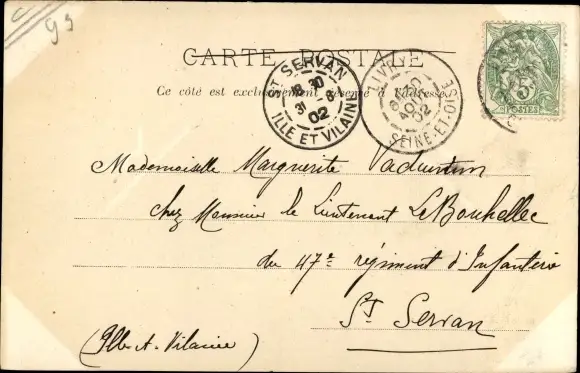 93
CARTE POSTALE
Ce côté est exclusivement réservé à l'adresse
ST SERVAN
31 -8
02
ILLE ET VILAINE
LIVRY
AOUT
02
SEINE-ET-OISE
5
POSTES
Mademoiselle Marguerite
chez Monsieur le Lieutenant Le Bouhellec
du 47e régiment d'Infanterie
St Servan
(Ille-et-Vilaine)